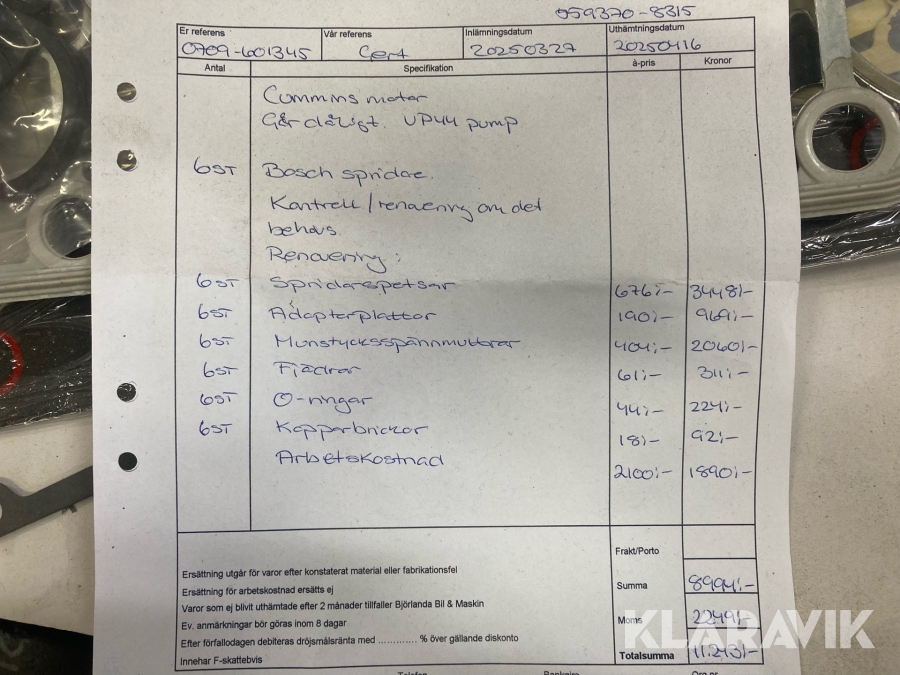 059370-8315
Er referens Vår referens Inlämningsdatum Uthämtningsdatum
0709-601345 Gert 20250327 20250416
Antal Specifikation à-pris Kronor
Cummins motor
Går dåligt. VP44 pump
6ST Bosch spridare.
Kontroll/renovering om det
behövs
Renovering:
6ST Spridarspetsar 676:- 3448:-
6ST Adapterplattor 190:- 969:-
6ST Munstycksspännmuttrar 404:- 2060:-
6ST Fjädrar 61:- 311:-
6ST O-ringar 44:- 224:-
6ST Kopparbrickor 18:- 92:-
Arbetskostnad 2100:- 1890:-
Frakt/Porto
Ersättning utgår för varor efter konstaterat material eller fabrikationsfel
Ersättning för arbetskostnad ersätts ej
Summa 8994:-
Varor som ej blivit uthämtade efter 2 månader tillfaller Björlanda Bil & Maskin
Ev. anmärkningar bör göras inom 8 dagar
Moms 2249:-
Efter förfallodagen debiteras dröjsmålsränta med ............. % över gällande diskonto
Innehar F-skattebevis
Totalsumma 11.243:-
Telefon Bankgiro Org.nr
KLARAVIK